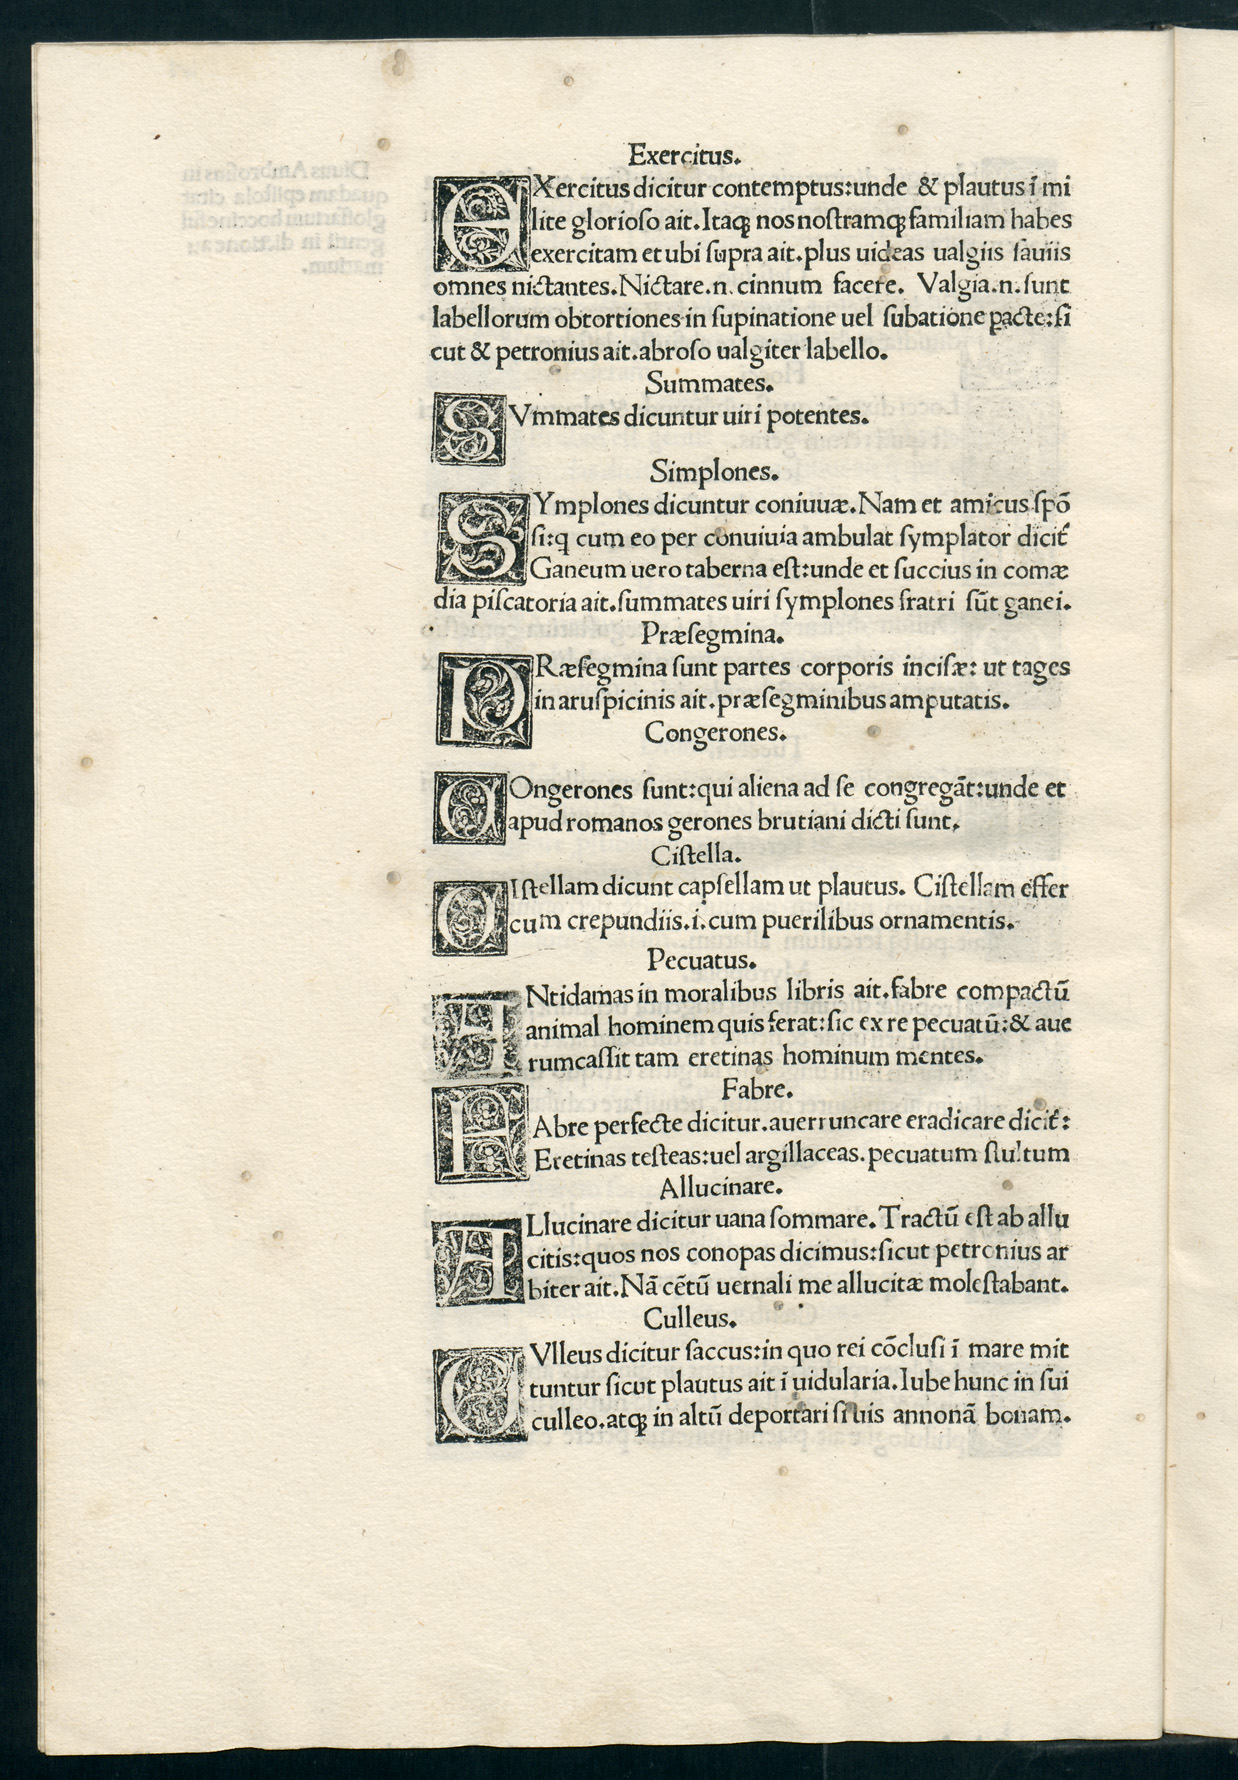 Exercitus.
EXercitus dicitur contemptus:unde & plautus ī mi
lite glorioſo ait.Itaqꝫ nos noſtramqꝫ familiam habes
exercitam et ubi ſupra ait.plus uideas ualgiis ſauiis
omnes nictantes.Nictare.n.cinnum facere. Valgia.n.ſunt
labellorum obtortiones in ſupinatione uel ſubatione pacte:ſi
cut & petronius ait.abroſo ualgiter labello.
Summates.
SVmmates dicuntur uiri potentes.
Simplones.
SYmplones dicuntur coniuuæ.Nam et amicus ſpō
ſi:q cum eo per conuiuia ambulat ſymplator dicit᷑
Ganeum uero taberna eſt:unde et ſuccius in comæ
dia piſcatoria ait.ſummates uiri ſymplones fratri ſūt ganei.
Præſegmina.
PRæſegmina ſunt partes corporis inciſæ: ut tages
in aruſpicinis ait.præſegminibus amputatis.
Congerones.
COngerones ſunt:qui aliena ad ſe congregāt:unde et
apud romanos gerones brutiani dicti ſunt.
Ciſtella.
CIſtellam dicunt capſellam ut plautus. Ciſtellam effer
cum crepundiis.i.cum puerilibus ornamentis.
Pecuatus.
ANtidamas in moralibus libris ait.fabre compactū
animal hominem quis ferat:ſic ex re pecuatū:& aue
rumcaſſit tam eretinas hominum mentes.
Fabre.
FAbre perfecte dicitur.auerruncare eradicare dicit᷑:
Eretinas teſteas:uel argillaceas.pecuatum ſtultum
Allucinare.
ALlucinare dicitur uana ſommare.Tractū eſt ab allu
citis:quos nos conopas dicimus:ſicut petronius ar
biter ait.Nā cētū uernali me allucitæ moleſtabant.
Culleus.
CVlleus dicitur ſaccus:in quo rei cōcluſi ī mare mit
tuntur ſicut plautus ait ī uidularia.Iube hunc in ſui
culleo.atqꝫ in altū deportari ſi uis annonā bonam.